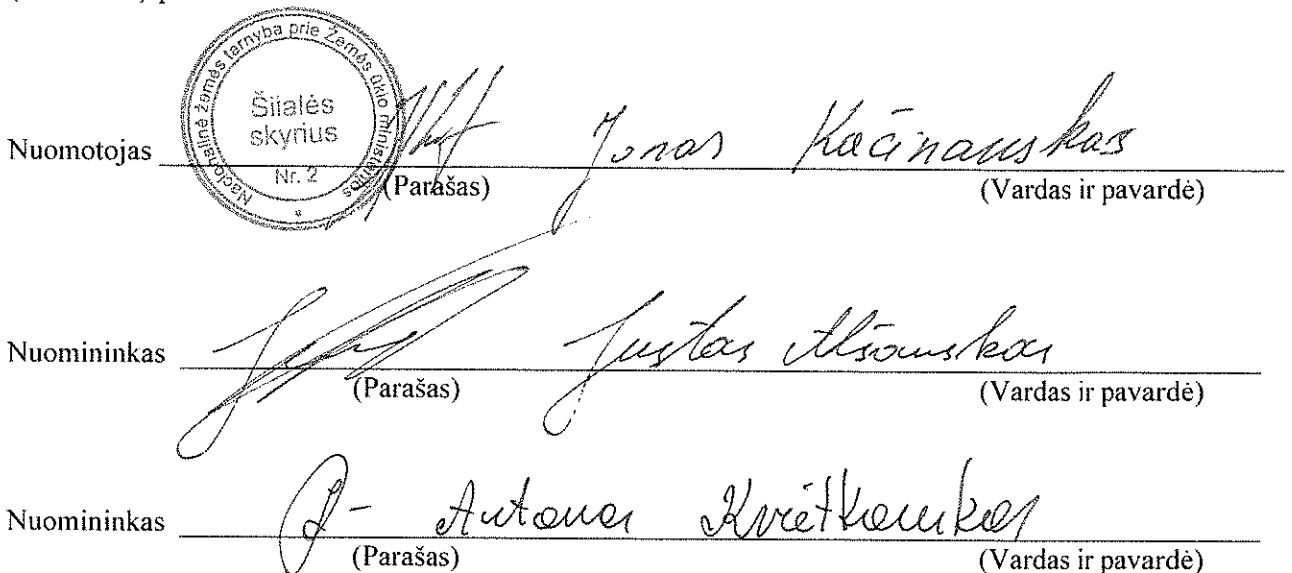 Nacionalinė žemės tarnyba prie Žemės ūkio ministerijos
Šilalės
skyrius
Nr. 2
Nuomotojas Jonas Kačinauskas
(Parašas) (Vardas ir pavardė)
Nuomininkas Justas Ališauskas
(Parašas) (Vardas ir pavardė)
Nuomininkas Antanas Kvietkauskas
(Parašas) (Vardas ir pavardė)